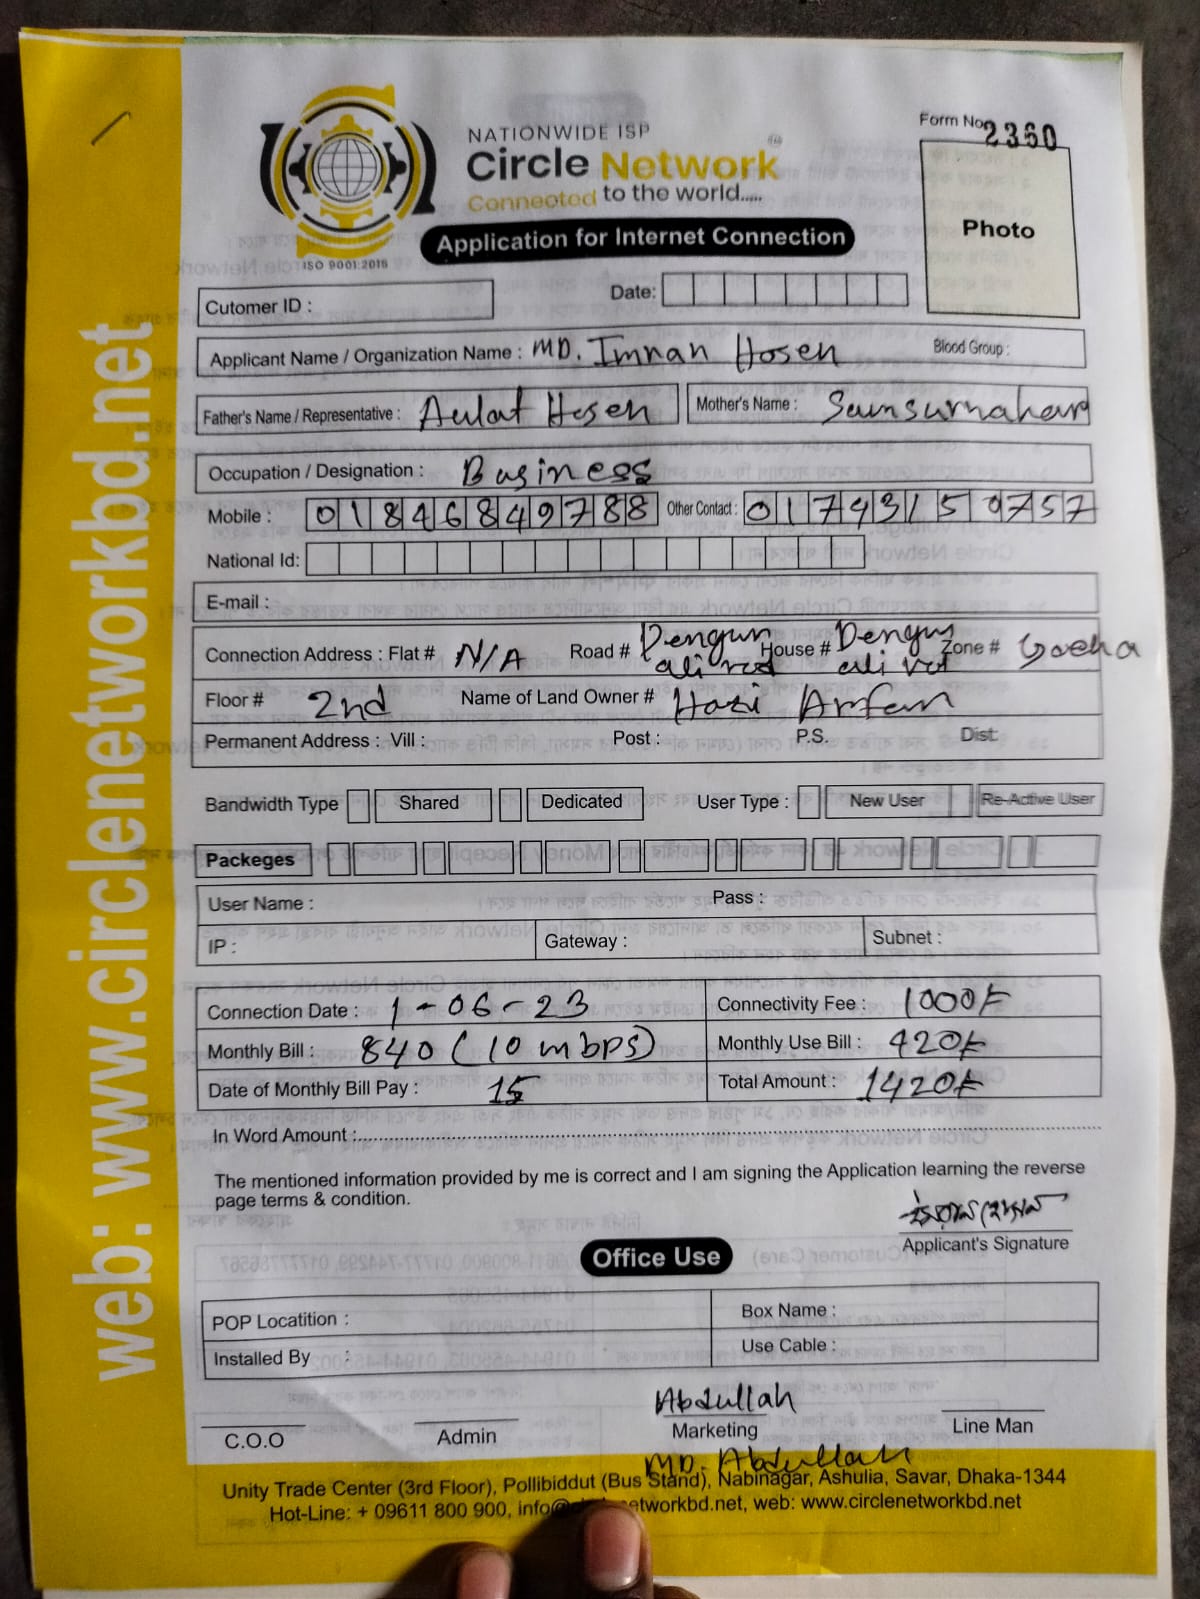 Form No. 2360
NATIONWIDE ISP
Circle Network
Connected to the world.....
ISO 9001:2015
Application for Internet Connection
Photo
web: www.circlenetworkbd.net
Cutomer ID :
Date:
Applicant Name / Organization Name : MD. Imran Hosen Blood Group :
Father's Name / Representative : Aulat Hosen Mother's Name : Samsurnahar
Occupation / Designation : Business
Mobile : 01846849788 Other Contact : 01743159757
National Id:
E-mail :
Connection Address : Flat # N/A Road # Dengur ali rod House # Dengur ali rod Zone #
Floor # 2nd Name of Land Owner # Hazi Arfan
Permanent Address : Vill : Post : P.S. Dist:
Bandwidth Type Shared Dedicated User Type : New User Re-Active User
Packeges
User Name : Pass :
IP : Gateway : Subnet :
Connection Date : 1-06-23 Connectivity Fee : 1000/=
Monthly Bill : 840 (10 mbps) Monthly Use Bill : 420/=
Date of Monthly Bill Pay : 15 Total Amount : 1420/=
In Word Amount :
The mentioned information provided by me is correct and I am signing the Application learning the reverse
page terms & condition.
Applicant's Signature
Office Use
POP Locatition : Box Name :
Installed By : Use Cable :
Abdullah
C.O.O Admin Marketing Line Man
MD. Abdullah
Unity Trade Center (3rd Floor), Pollibiddut (Bus Stand), Nabinagar, Ashulia, Savar, Dhaka-1344
Hot-Line: + 09611 800 900, info@ networkbd.net, web: www.circlenetworkbd.net